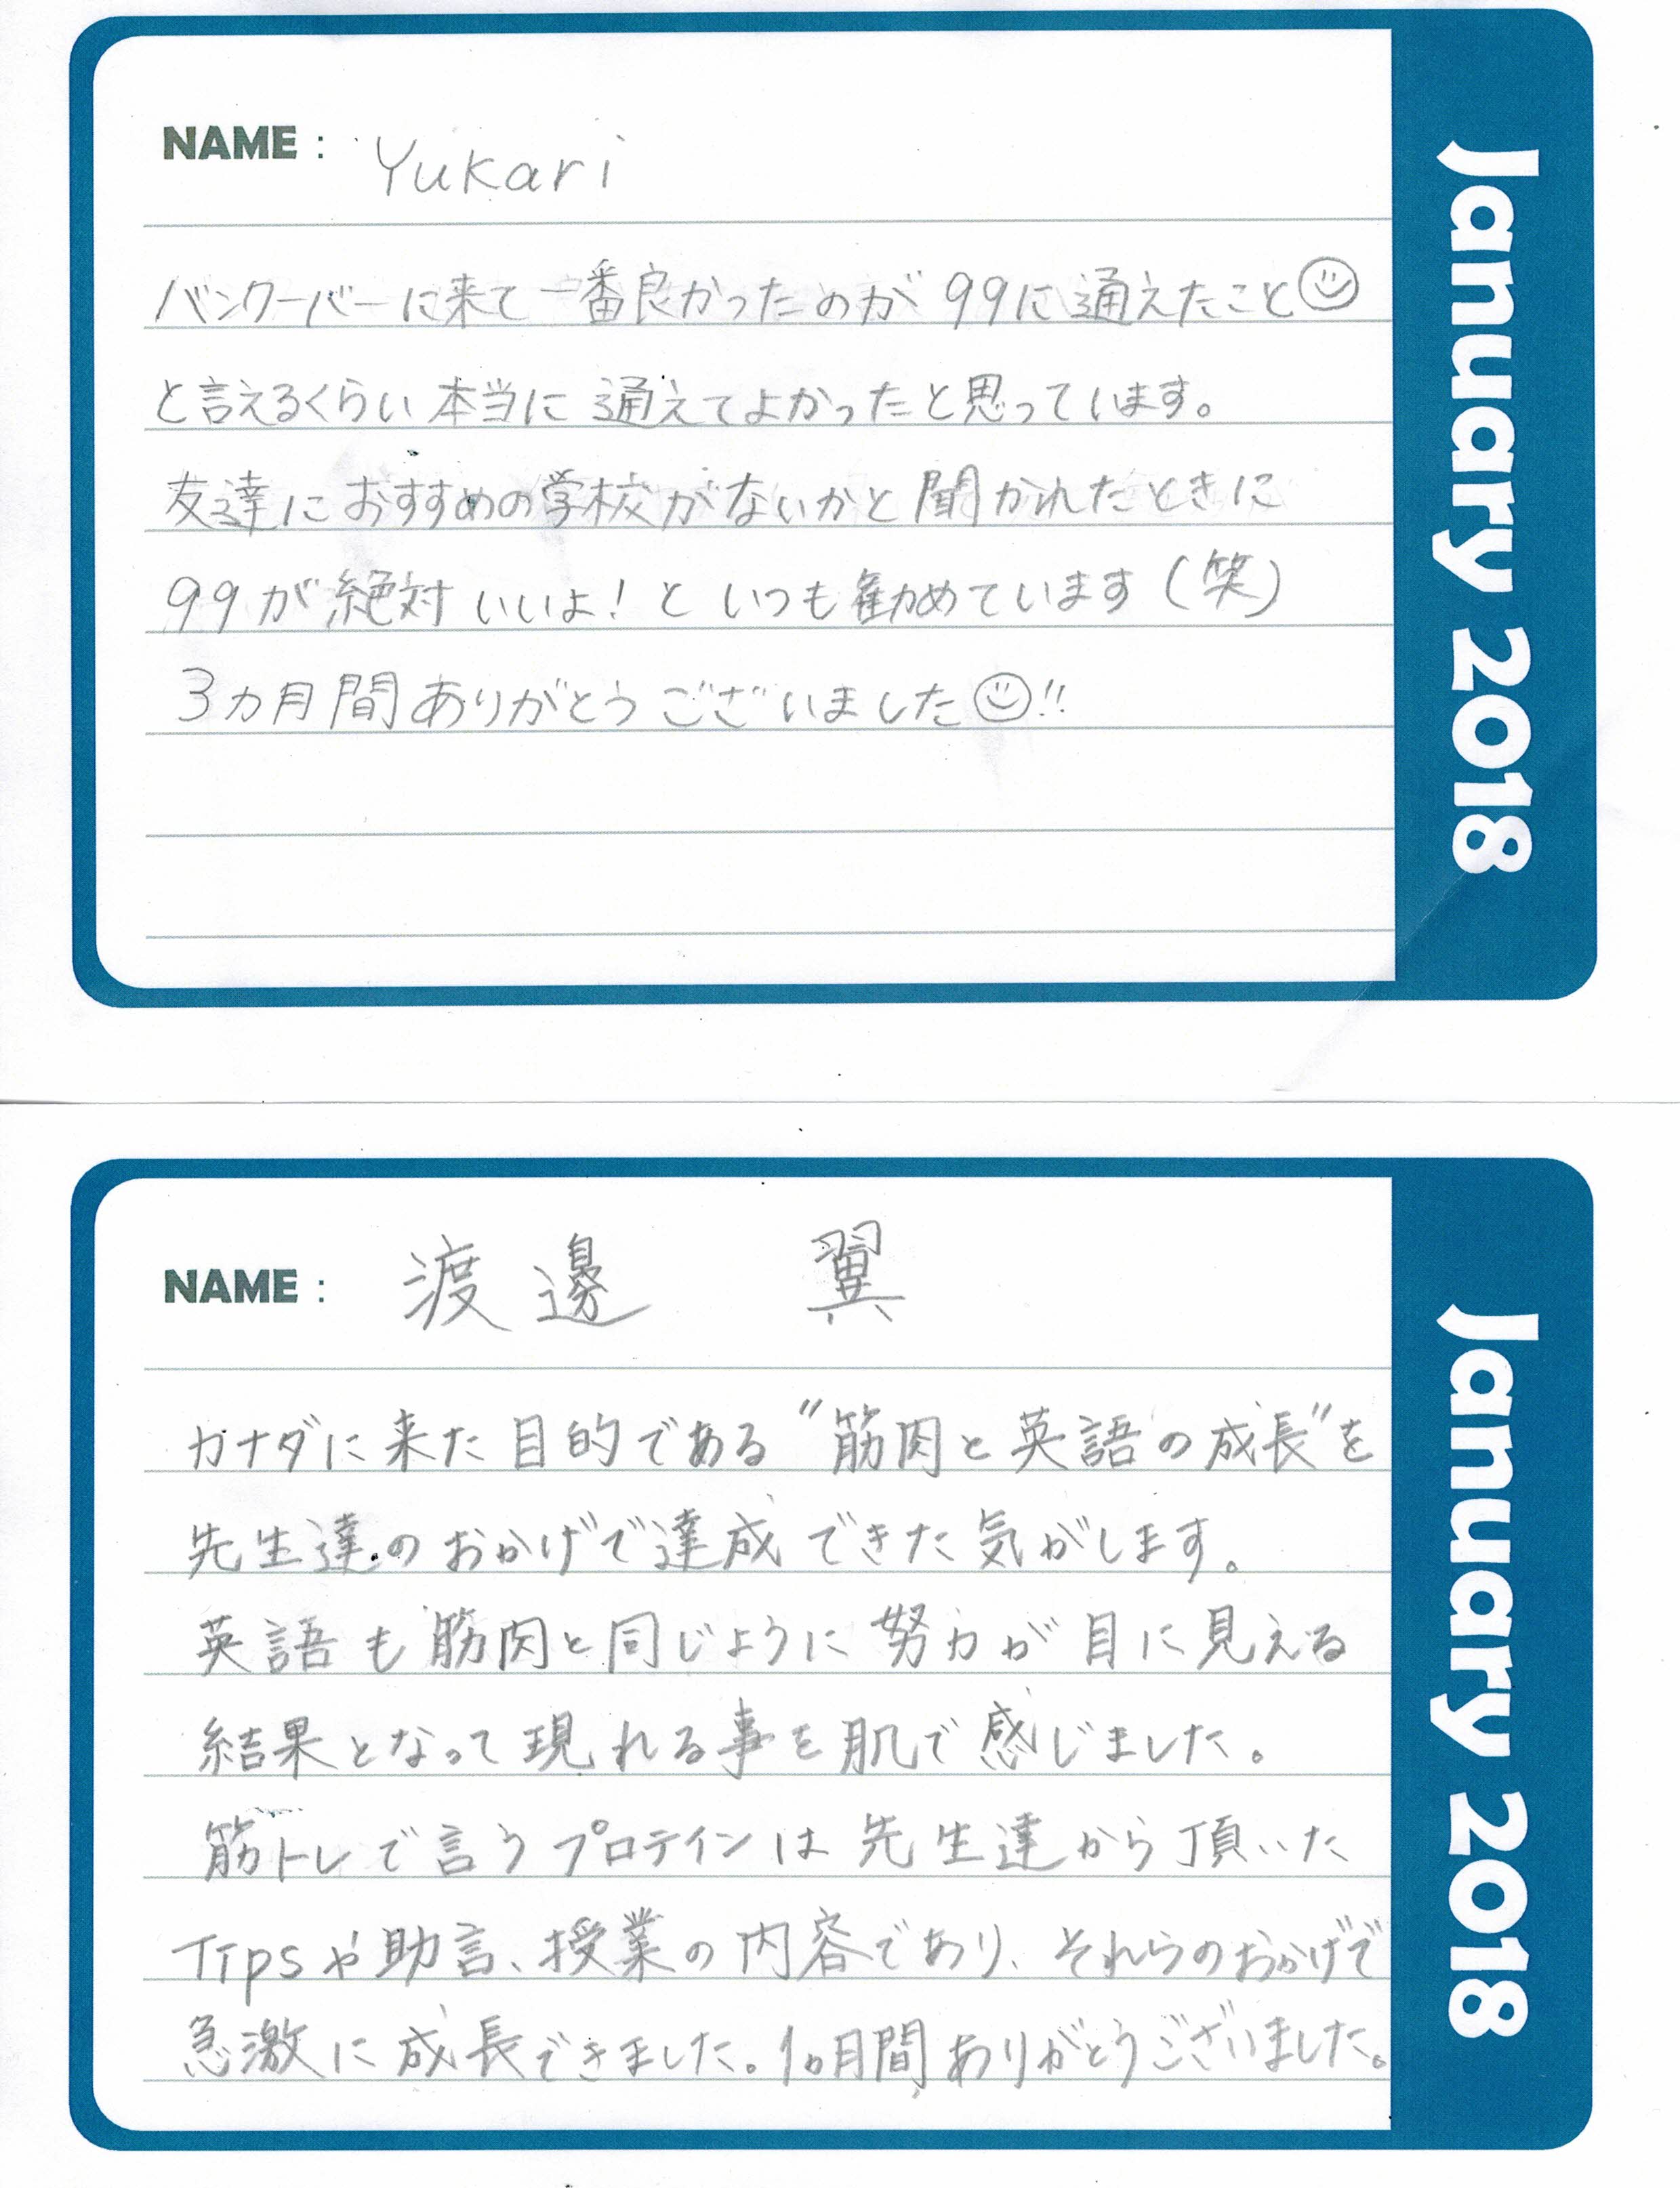 NAME : Yukari
バンクーバーに来て一番良かったのが99に通えたこと☺
と言えるくらい本当に通えてよかったと思っています。
友達におすすめの学校がないかと聞かれたときに
99が絶対いいよ!といつも勧めています(笑)
3カ月間ありがとうございました☺!!
January 2018
NAME : 渡邊 翼
カナダに来た目的である"筋肉と英語の成長"を
先生達のおかげで達成できた気がします。
英語も筋肉と同じように努力が目に見える
結果となって現れる事を肌で感じました。
筋トレで言うプロテインは先生達から頂いた
Tipsや助言、授業の内容であり、それらのおかげで
急激に成長できました。1ヵ月間ありがとうございました。
January 2018